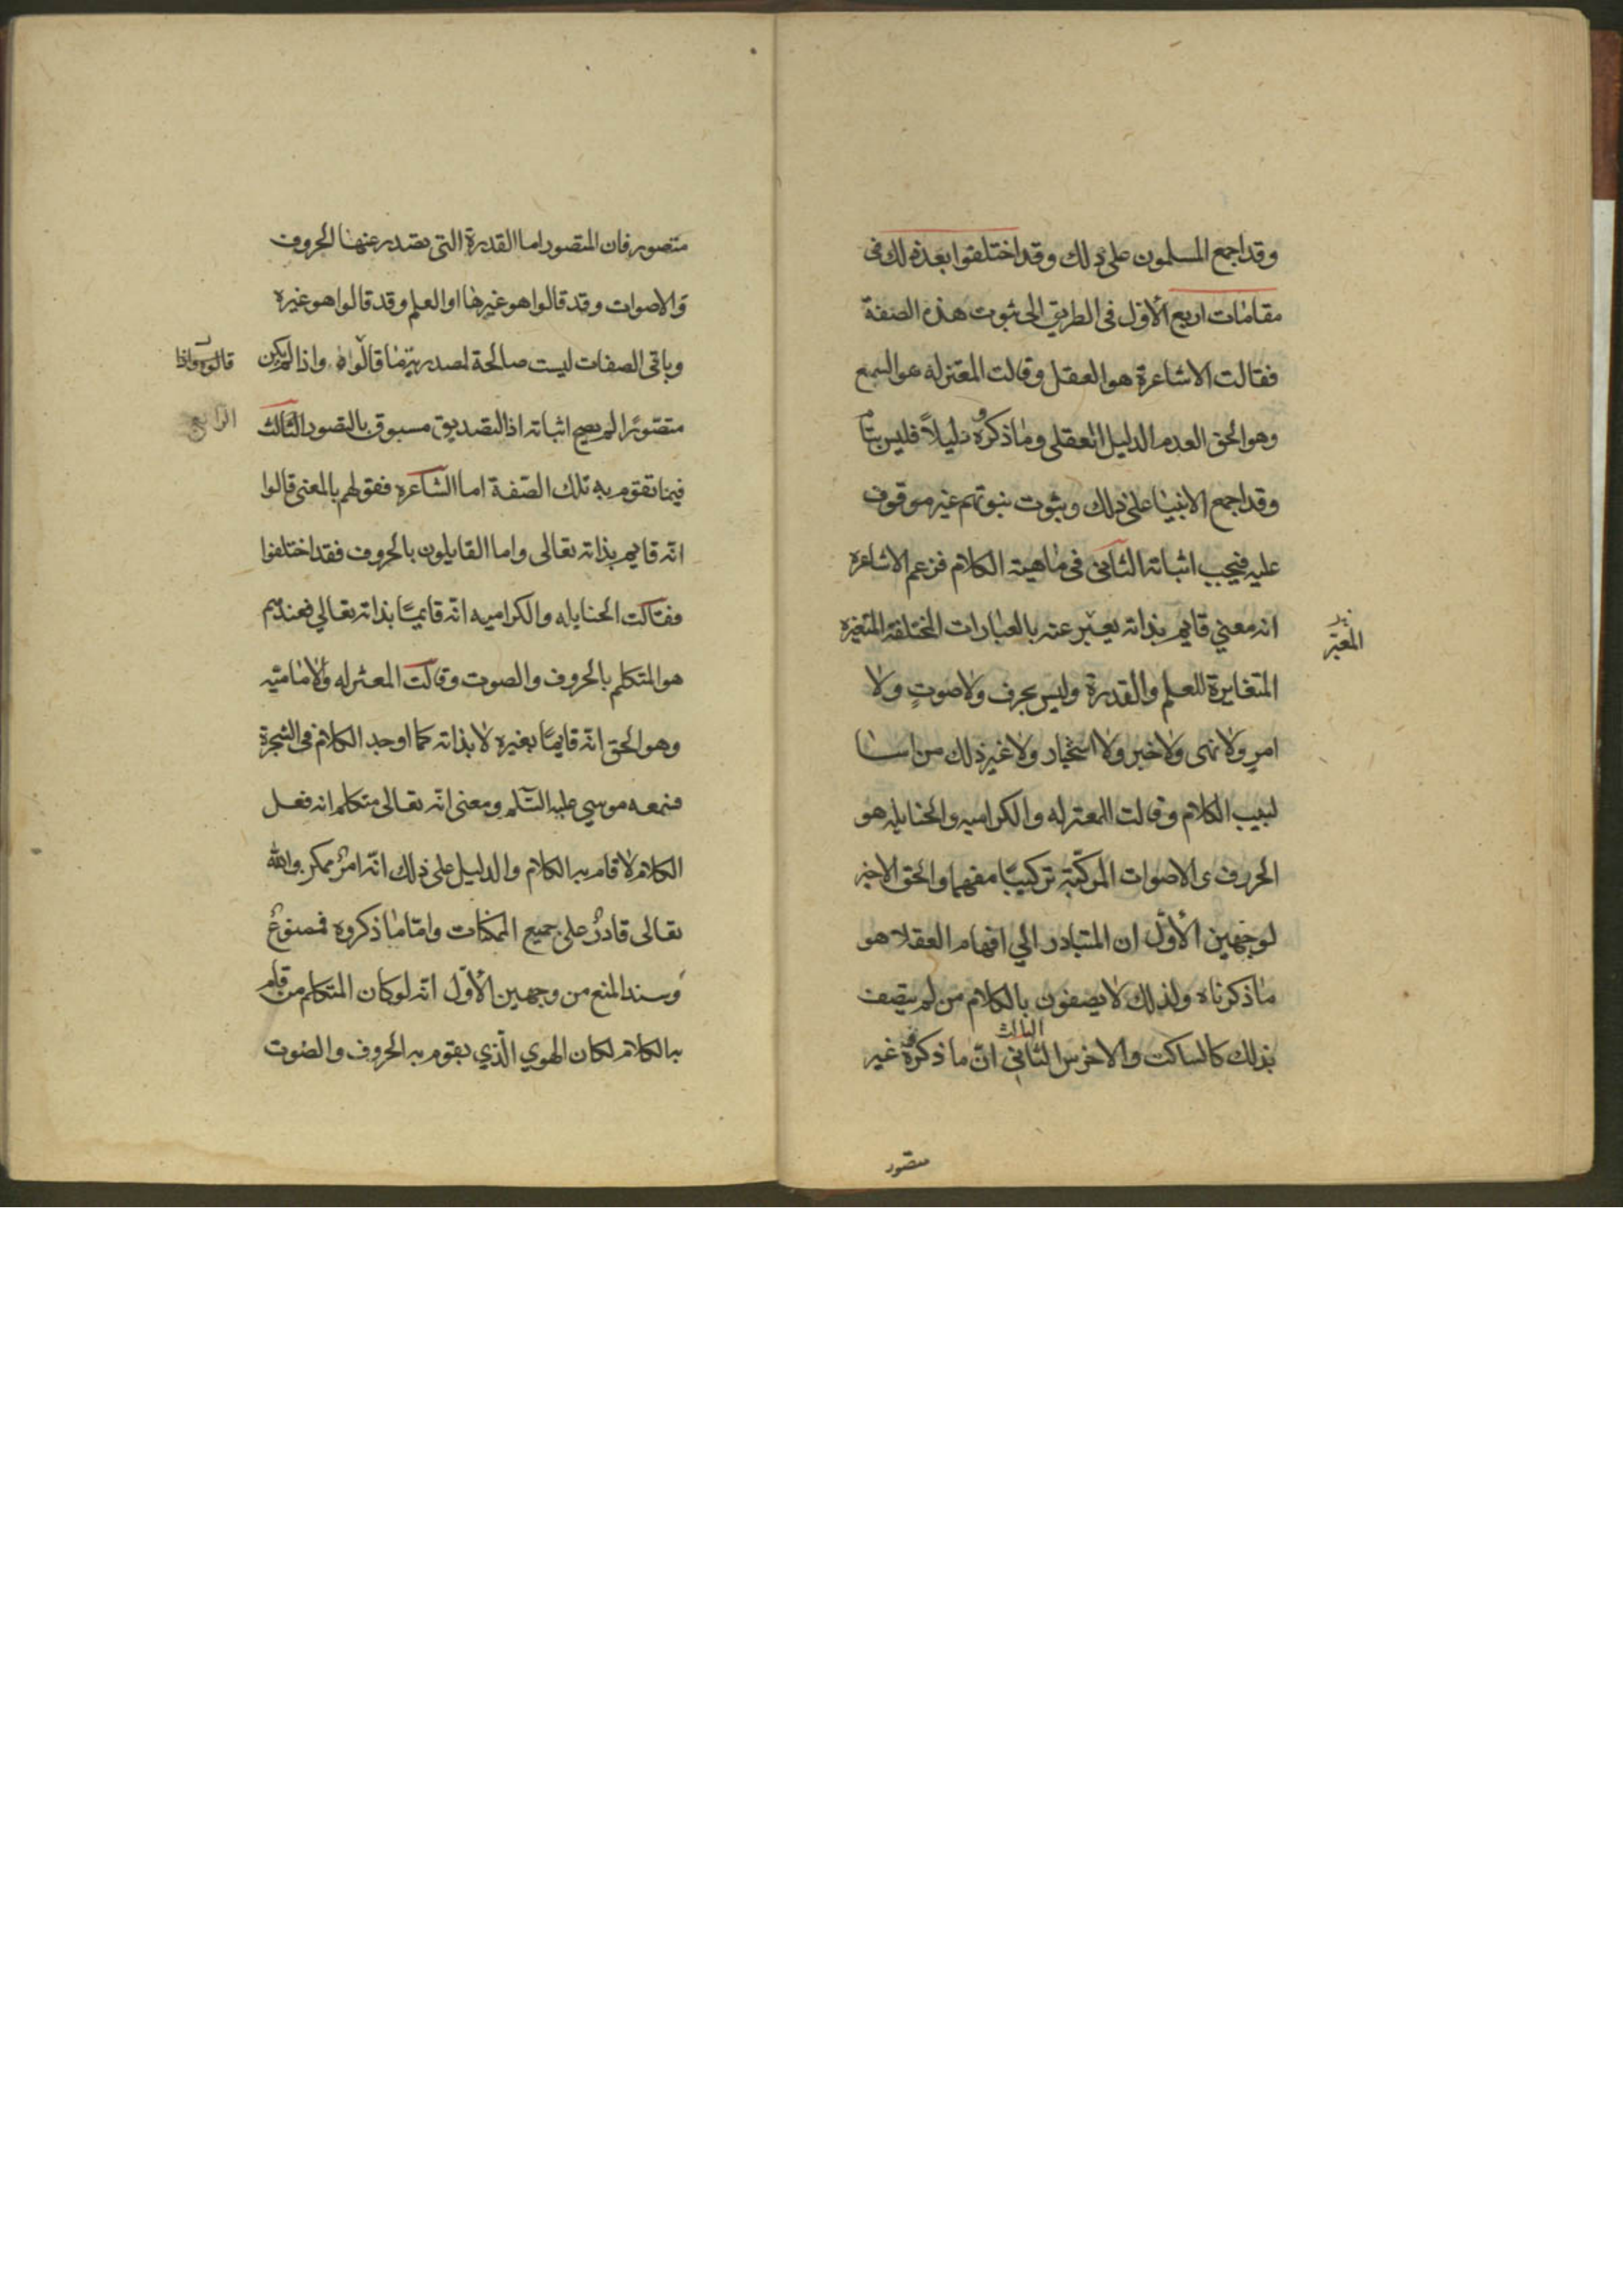 وقد اجمع المسلمون على ذلك وقد اختلفوا بعد ذلك فى
مقامات اربع الأول فى الطريق الى ثبوت هذه الصفة
فقالت الاشاعرة هو العقل وقالت المعتزله هو السمع
وهو الحق العدم الدليل العقلى وما ذكروه دليلاً فليس بتام
وقد اجمع الانبيا على ذلك وثبوت نبوتهم غير موقوف
عليه فيجب اثباته الثانى فى ماهية الكلام فزعم الاشاعره
انه معني قايم بذاته يعبّر عنه بالعبارات المختلفة المتغيره
المتغايرة للعلم والقدرة وليس بحرف ولا صوتٍ ولا
امرٍ ولا نهى ولا خبر ولا استخبار ولا غير ذلك من
الكلام وقالت المعتزله والكراميه والحنابله هو
الحروف ى الاصوات المركّبة تركيبًا مفهما والحق الاخير
لوجهين الأوّل ان المتبادر الي افهام العقلا هو
ما ذكرناه ولذلك لا يصفون بالكلام من لم يتصف
الثالث
بذلك كالساكت والاخرس الثانى انّ ما ذكروه غير
متصور
متصور فان المتصور اما القدرة التى تصدر عنها الحروف
والاصوات وقد قالوا هو غيرها او العلم وقد قالوا هو غيره
وباقى الصفات ليست صالحة لمصدرية ما قالوه واذا لم يكن
قالوه واذا
متصورًا لم يصح اثباته اذ التصديق مسبوق بالتصور الثالث
الرابع
فيما تقوم به تلك الصّفة اما الشاعره فقولهم بالمعنى قالوا
انّه قايم بذاته تعالى واما القايلون بالحروف فقد اختلفوا
فقالت الحنابله والكراميه انّه قايمًا بذاته تعالي فعندهم
هو المتكلم بالحروف والصوت وقالت المعتزله والاماميّه
وهو الحق انّه قايمًا بغيره لا بذاته كما اوجد الكلام فى الشجرة
فسمعه موسي عليه السّلم ومعنى انّه تعالى متكلم انه فعل
الكلام لا قام به الكلام والدليل على ذلك انّه امرٌ ممكن والله
تعالى قادرٌ على جميع الممكنات وامّا ما ذكروه فممنوعٌ
وسند المنع من وجهين الأوّل انّه لو كان المتكلم من قام
به الكلام لكان الهوي الّذي يقوم به الحروف والصوت